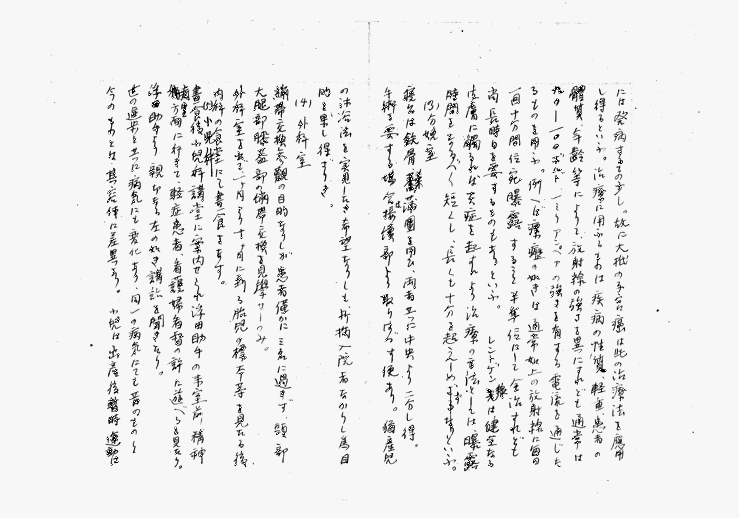 には発病するもの少し。故に大抵の子宮癌は此の治療法を應用
し得るといふ。治療に用ふるものは疾病の性質、軽重患者の
體質年齢等によりて放射線の強さを異にすれども通常は
一ミリアンペアの強さを有する電流を通じた
るものを用ふ。例へば瘰癧の如きは通常如上の放射線に毎日
一回十分間位宛曝露することを半年位にして全治すれども
尚長時日を要するものもありといふ。レントゲン線は健全なる
皮膚に觸るれば炎症を起すより治療の方法としては、曝露
時間を短くし、長くも十分を超えしめずといふ。
(3)分娩室
寝台は鉄骨藁蒲團を用ひ、両者共に中央より二分し得。
手術を要する場合は接續部より取りはづす便あり。
の沐浴法を実見したき希望なりしも折柄入院者なかりし為目
的を果し得ざりき。
(4)外科室
繃帯交換参觀の目的なりしが患者僅かに三名に過ぎず、頭部
大腿部膝蓋部の繃帯交換を見學せしのみ。
外科室を出で一ヶ月より十ヶ月に到る胎児の標本等を見たる後
内科の食堂にて晝食をなす。
(5)小児科
晝食後小児科講堂に案内せられ浮田助手の来室前、精神
病室方面に行きて軽症患者看護婦看督の許に遊べるを見たり。
浮田助手より親しく左の如き講話を聞きたり。
世の進歩と共に病気にも変化あり、同一の病気にても昔のものと
今のものとは其容体に差異あり。小児は出産後暫時運動は